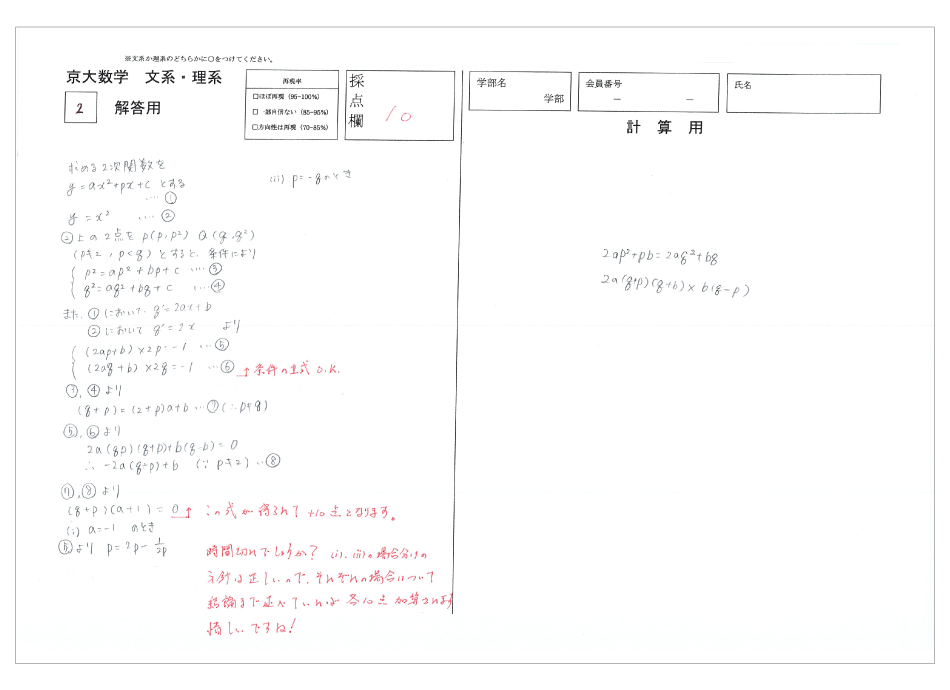 ※文系か理系のどちらかに〇をつけてください。
京大数学 文系・理系
2 解答用
再現率
□ほぼ再現（95-100%）
□一部自信ない（85-95%）
□方向性は再現（70-85%）
採点欄 10
学部名
学部
会員番号
－ －
氏名
計算用
求める2次関数を
y=ax²+px+c とする
…①
y=x² …②
②上の2点を P(p,p²) Q(q,q²)
(p≠2, p<q) とすると、条件により
p²=ap²+bp+c …③
q²=aq²+bq+c …④
また、①において y'=2ax+b
②において y'=2x より
(2ap+b)×2p=-1 …⑤
(2aq+b)×2q=-1 …⑥
↑条件の立式 O.K.
③,④より
(q+p)=(2+p)a+b …⑦(∴p≠q)
⑤,⑥より
2a(qp)(q+p)+b(q-p)=0
∴ -2a(q-p)+b (∵ p≠2) …⑧
⑦,⑧より
(q+p)(a+1)=0
↑この式が得られて +10点となります。
(i) a=-1 のとき
⑤より p=2p-1/2p
(ii) p=-qのとき
時間切れでしょうか? (i),(ii)の場合分けの
方針は正しいので、それぞれの場合について
結論まで述べていれば 各10点 加算されます
惜しいですね!
2ap²+pb=2aq²+bq
2a(q+p)(q+b)×b(q-p)